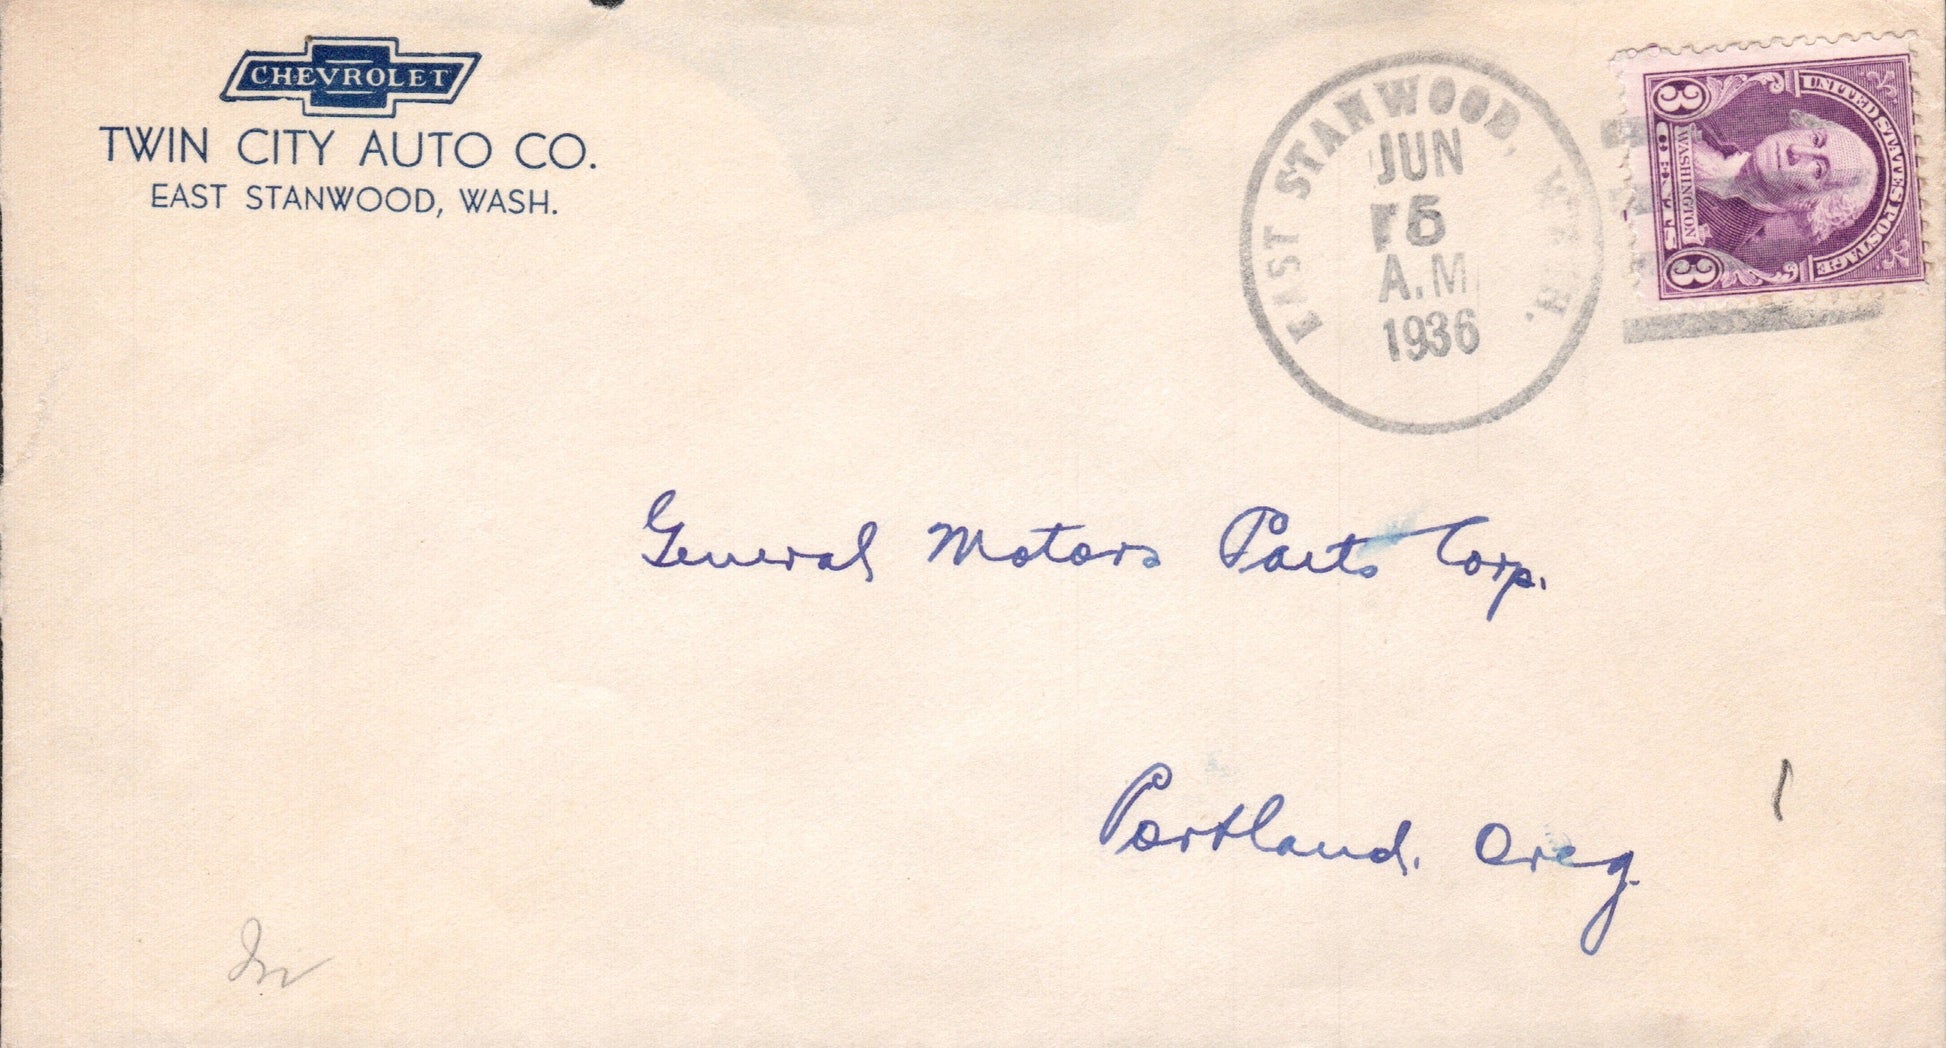 CHEVROLET
TWIN CITY AUTO CO.
EAST STANWOOD, WASH.
EAST STANWOOD, WASH.
JUN
5
A.M.
1936
UNITED STATES POSTAGE
WASHINGTON
3 CENTS 3
General Motors Parts Corp.
Portland. Oreg.